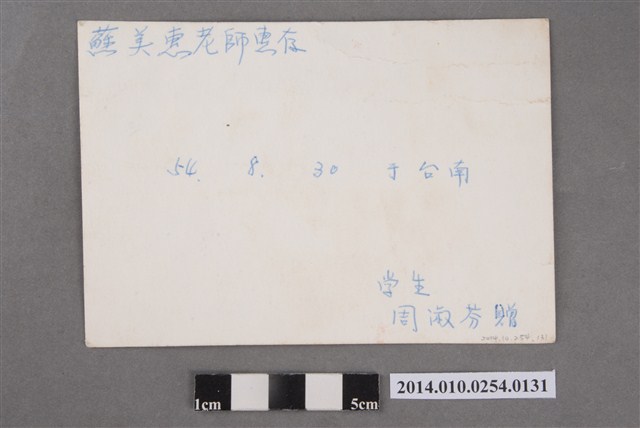 蘇美惠老師惠存
54. 8. 30 于台南
学生
周淑芬贈
1cm 5cm
2014.010.0254.0131